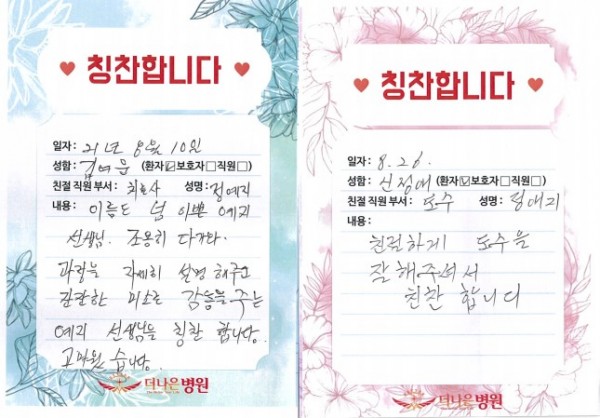 ♥ 칭찬합니다 ♥
일자: 21년 8월 10일
성함: 김여운 (환자☑보호자☐직원☐)
친절 직원 부서: 치료사 성명: 정예지
내용: 이름도 넘 이쁜 예지
선생님. 조용히 다가와.
과정을 자세히 설명 해주고
잔잔한 미소로 감동을 주는
예지 선생님을 칭찬 합니다.
고마웠습니다.
더나은병원
♥ 칭찬합니다 ♥
일자: 8.26.
성함: 신정애 (환자☑보호자☐직원☐)
친절 직원 부서: 도수 성명: 정예지
내용:
친절하게 도수을
잘해주셔서
친찬 합니다
더나은병원